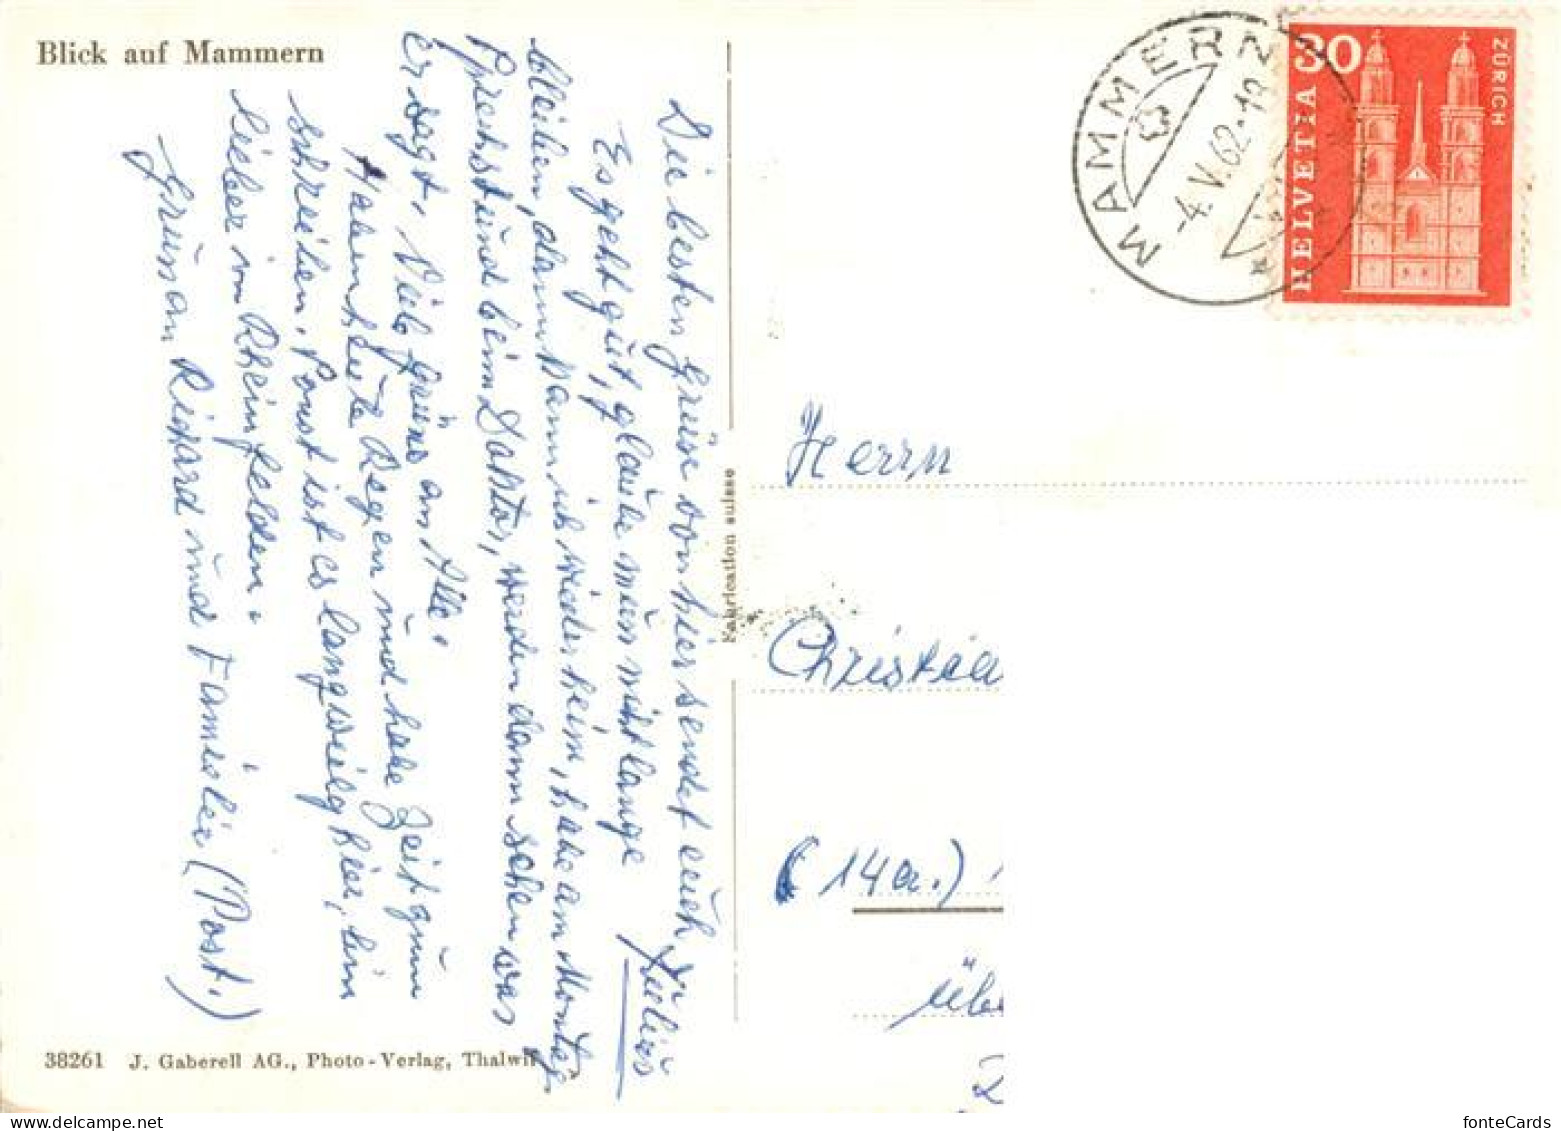 Blick auf Mammern
Die besten Grüse von hier sendet euch
Es geht gut, glaube mus nicht lange Julius
bleiben, dann kann ich wieder heim, habe am Montag
Sprechstund beim Doktor, werden dann sehen was
er sagt. Viele grüse an Alle.
Haben heute Regen und habe Zeit zum
schreiben. Sonst ist es langweilig hier, bin
lieber in Rheinfelden.
Grüse an Richard und Familie (Post.)
38261 J. Gaberell AG., Photo-Verlag, Thalwil
Fabrication suisse
MAMMERN
-4.V.62-18
HELVETIA 30
ZÜRICH
Herrn
Christia
(14a.)
übe
fonteCards